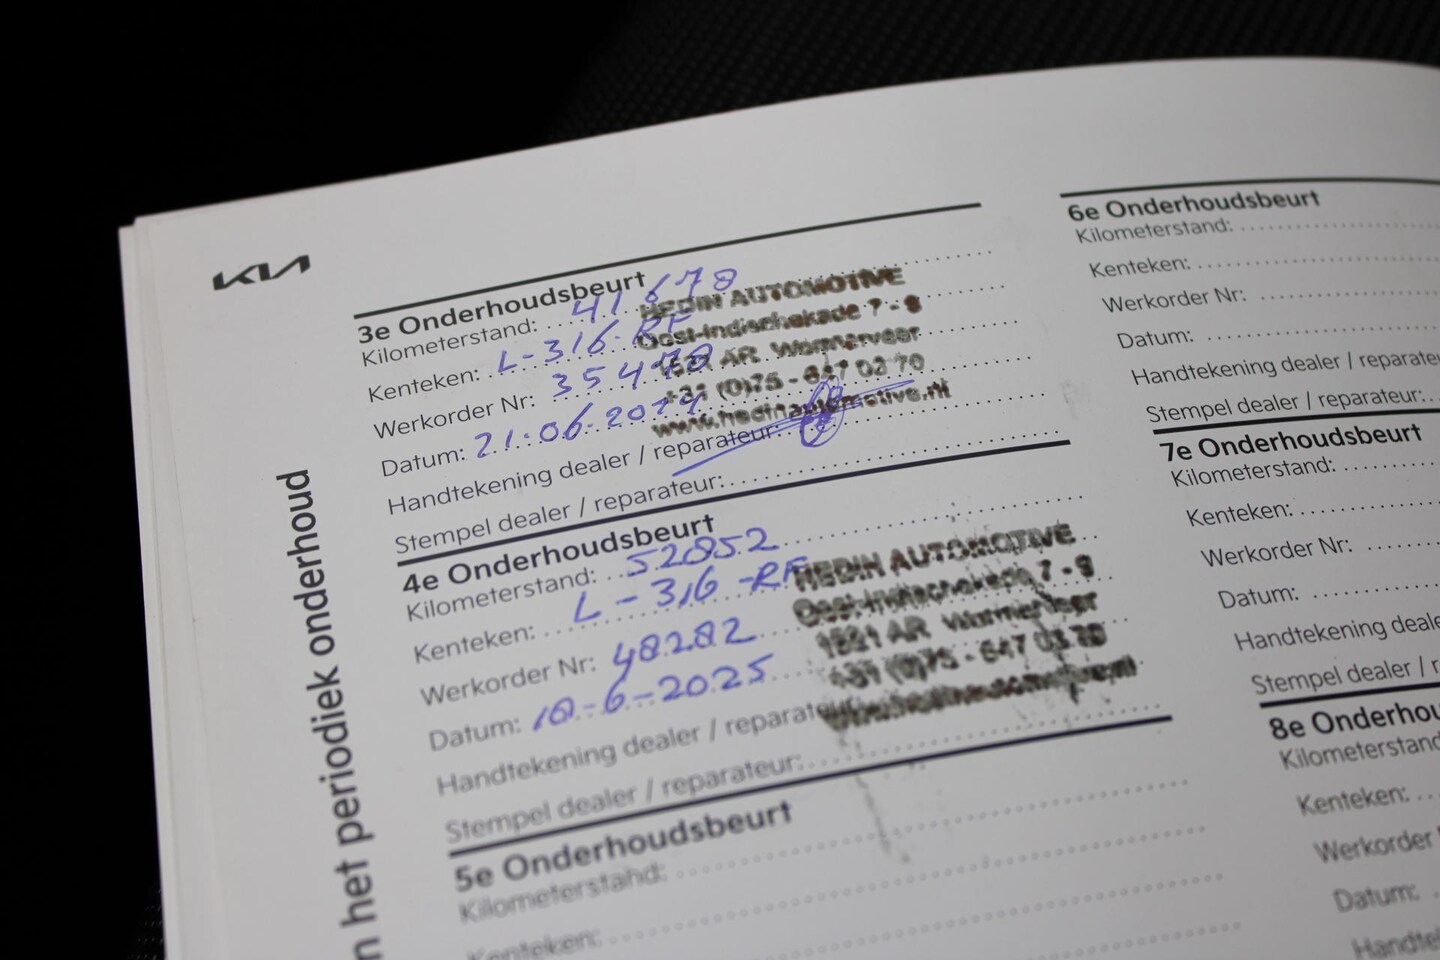 KIA
n het periodiek onderhoud
3e Onderhoudsbeurt
Kilometerstand: 41678
Kenteken: L-316-RF
Werkorder Nr: 35478
Datum: 21-06-2024
Handtekening dealer / reparateur:
Stempel dealer / reparateur:
HEDIN AUTOMOTIVE
Oost-Indischekade 7 - 9
1521 AR Wormerveer
+31 (0)75 - 647 03 70
www.hedinautomotive.nl
4e Onderhoudsbeurt
Kilometerstand: 52852
Kenteken: L-316-RF
Werkorder Nr: 48282
Datum: 10-6-2025
Handtekening dealer / reparateur:
Stempel dealer / reparateur:
HEDIN AUTOMOTIVE
Oost-Indischekade 7 - 9
1521 AR Wormerveer
+31 (0)75 - 647 03 70
www.hedinautomotive.nl
5e Onderhoudsbeurt
Kilometerstand:
Kenteken:
6e Onderhoudsbeurt
Kilometerstand:
Kenteken:
Werkorder Nr:
Datum:
Handtekening dealer / reparate
Stempel dealer / reparateur:
7e Onderhoudsbeurt
Kilometerstand:
Kenteken:
Werkorder Nr:
Datum:
Handtekening deale
Stempel dealer / r
8e Onderhou
Kilometerstand
Kenteken:
Werkorder
Datum:
Handtek